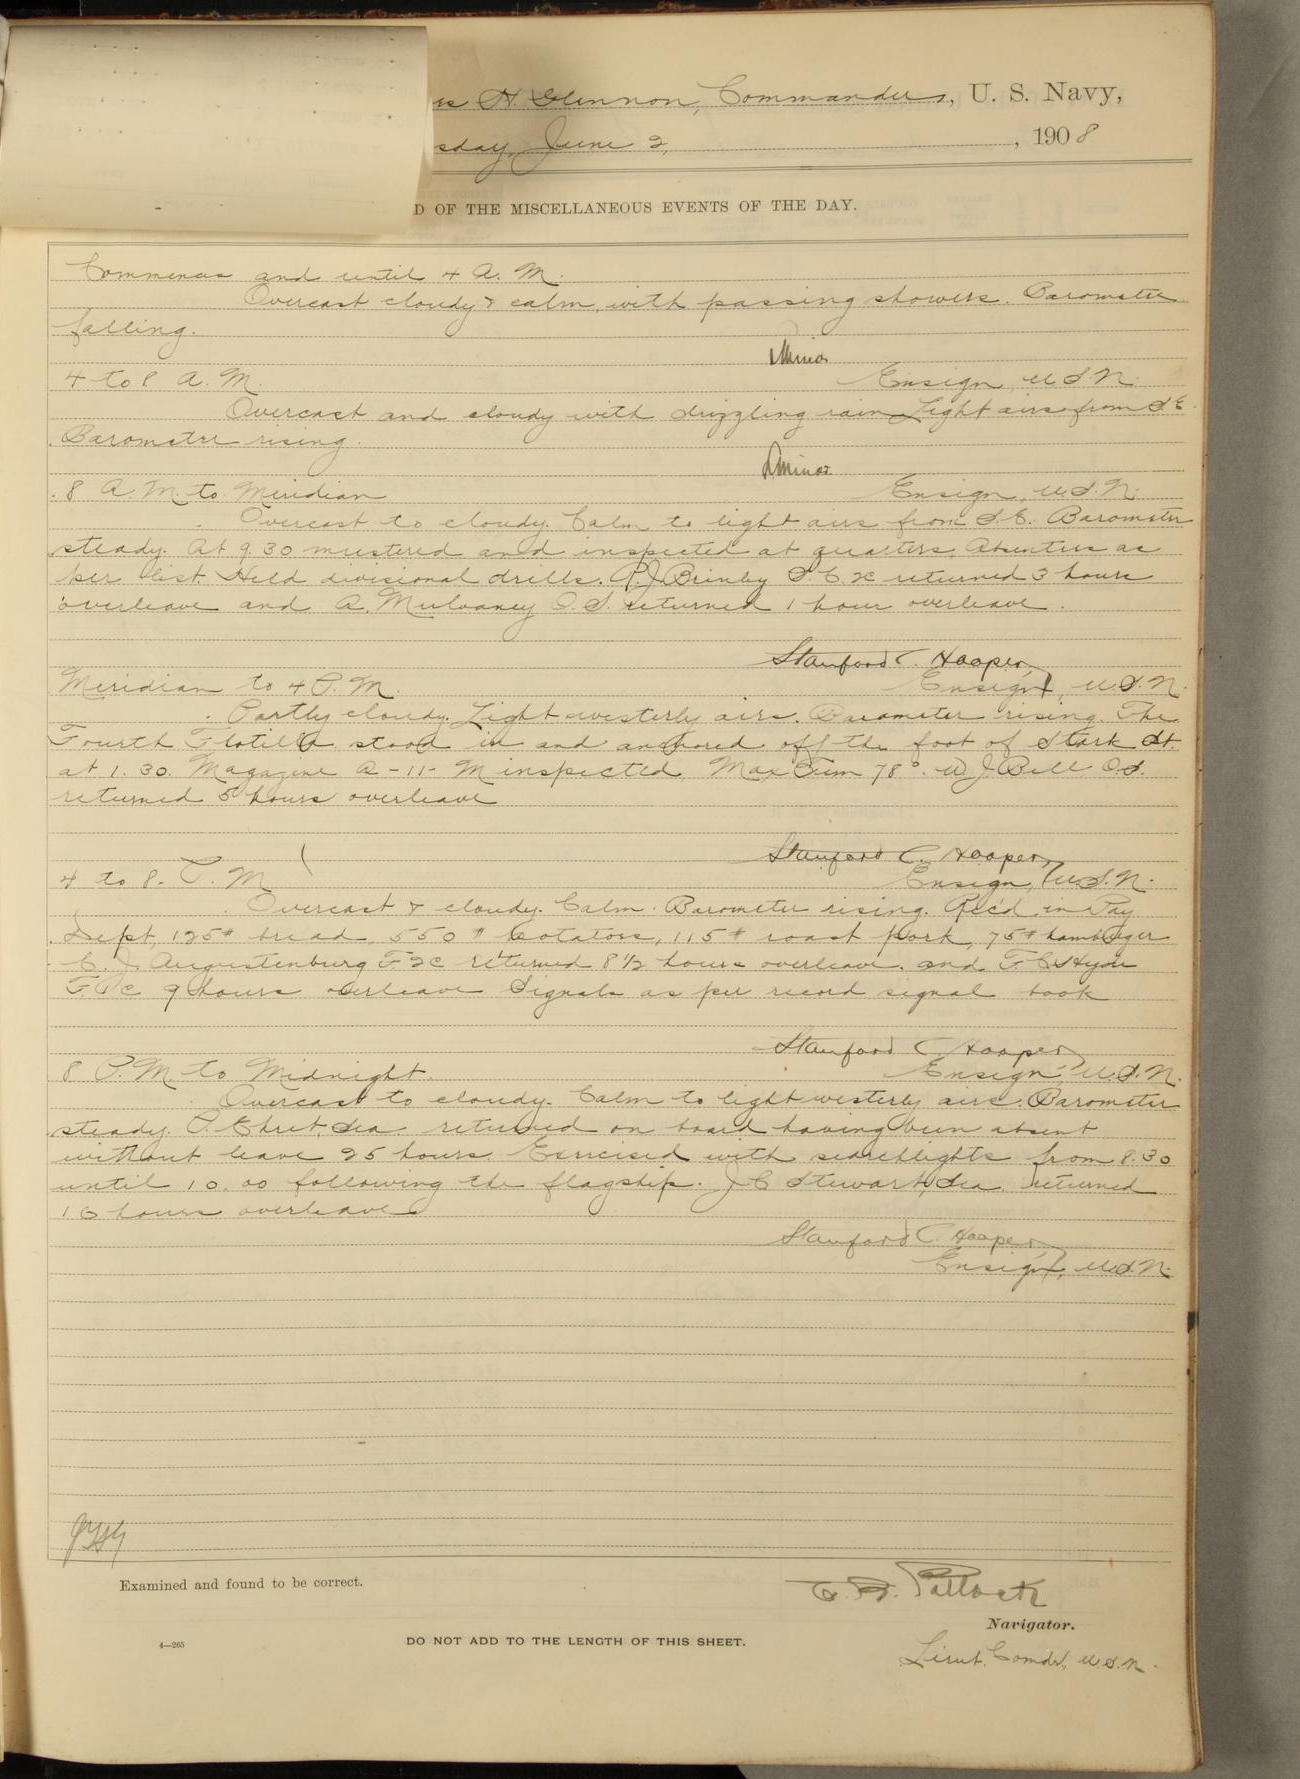 es H. Glennon, Commander, U. S. Navy,
sday, June 2, , 1908
D OF THE MISCELLANEOUS EVENTS OF THE DAY.
Commences and until 4 A. M.
Overcast cloudy & calm, with passing showers. Barometer
falling.
4 to 8 A. M.
Ensign, U.S.N.
Overcast and cloudy with drizzling rain. Light airs from S E.
Barometer rising.
8 A. M. to Meridian
Ensign, U.S.N.
Overcast to cloudy. Calm to light airs from S.E. Barometer
steady. At 9.30 mustered and inspected at quarters. Absentees as
per list. Held divisional drills. P.J. Brinby S.C. 2c returned 3 hours
overleave and A. Mulvaney O.S. returned 1 hour overleave.
Stanford C. Hooper,
Meridian to 4 P. M.
Ensign, U.S.N.
Partly cloudy. Light westerly airs. Barometer rising. The
Fourth Flotilla stood in and anchored off the foot of Stark St.
at 1.30. Magazine A-11-M inspected. Max Tem 78°. W J Bell O.S.
returned 5 hours overleave
Stanford C. Hooper,
4 to 8. P. M
Ensign, U.S.N.
Overcast & cloudy. Calm. Barometer rising. Rec'd in Pay
Dept, 125# bread, 550# potatoes, 115# roast pork, 75# hamburger
C. J. Augustenburg F 2c returned 8 1/2 hours overleave. and F. C. Hyde
9 hours overleave Signals as per record signal book
Stanford C Hooper,
8 P. M to Midnight.
Ensign, U.S.N.
Overcast to cloudy. Calm to light westerly airs. Barometer
steady. P. Ehret, Sea. returned on board having been absent
without leave 25 hours. Exercised with searchlights from 8.30
until 10.00 following the flagship. J C Stewart, Sea. returned
hours overleave
Stanford C. Hooper,
Ensign, U.S.N.
Examined and found to be correct.
Navigator.
4—265
DO NOT ADD TO THE LENGTH OF THIS SHEET.
Lieut. Comdr, U.S.N.